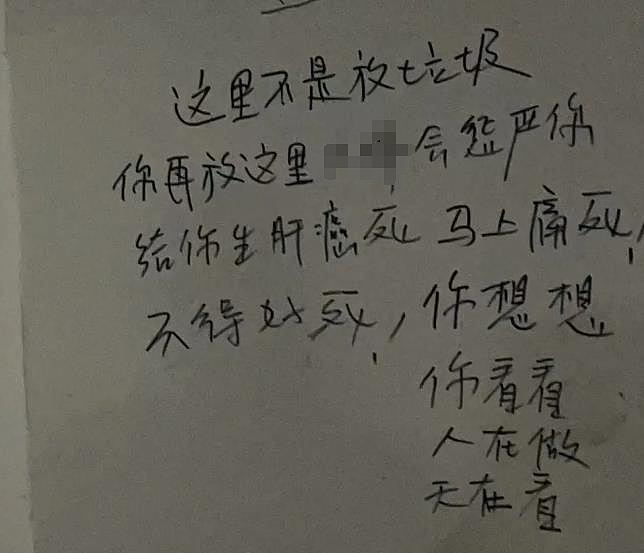 这里不是放垃圾
你再放这里 会惩严你
给你生肝癌死 马上痛死,
不得好死, 你想想
你看看
人在做
天在看